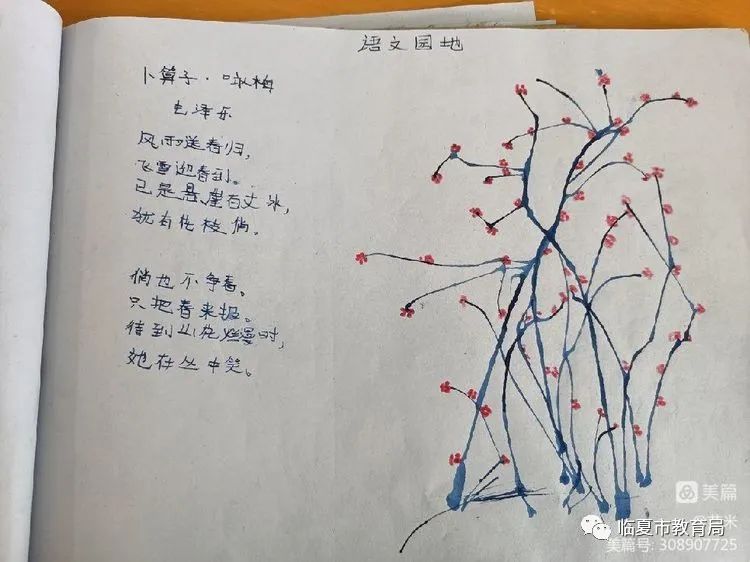 语文园地
卜算子·咏梅
毛泽东
风雨送春归，
飞雪迎春到。
已是悬崖百丈冰，
犹有花枝俏。
俏也不争春。
只把春来报。
待到山花烂漫时，
她在丛中笑。
美篇
临夏市教育局
美篇号: 308907725